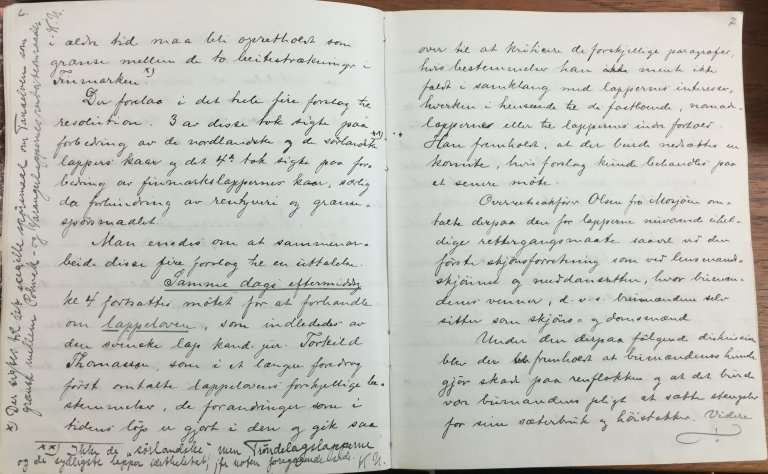 ældre tid maa bli opretholdt som
grænse mellem de to beitestrækninger i
Finmarken. x)
Der forelaa i det hele fire forslag til
resolution. 3 av disse tok sigte paa
forbedring av de nordlandske og de sörlandske xx)
lappers kaar og det 4de tok sigte paa for-
bedring av finmarkslappernes kaar, særlig
da forhindring av rentyveri og grænse-
spörsmaalet.
Man enedes om at sammenar-
beide disse fire forslag til en uttalelse.
Samme dags eftermiddag
kl 4 fortsattes mötet for at forhandle
om lappeloven, som indlededes av
den svenske lap kand. jur. Torkild
Thomasson, som i et længre foredrag
först omtalte lappelovens forskjellige be-
stemmelser, de forandringer som i
tidens löp er gjort i den og gik saa
xx) Ikke de "sörlandske" men Tröndelagslapperne
og de sydligste lapper idethele tat, jfr noten foregaaende side. K. N.
x) Der sigtes til det særskilte spörsmaal om Tanaelven som
grænse mellem Polmak- og Varangerlappernes renbeiteomraader
K. N.
2
over til at kritisere de forskjellige paragrafer,
hvis bestemmelser han mente ikke
faldt i samklang med lappernes interesser,
hverken i henseende til de fastboende, nomade-
lappernes eller til lappernes indre forhold.
Han fremholdt, at der burde nedsættes en
komite, hvis forslag kunde behandles paa
et senere möte.
Overretssakförer Olsen fra Mosjöen om-
talte derpaa den for lapperne nuværende uhel-
dige rettergangsmaate saavel ved den
förste skjönsforretning som ved lensmands-
skjönnet og meddomsretten, hvor bumæn-
denes venner, d.v.s. bumændene selv
sitter som skjöns- og domsmænd.
Under den derpaa fölgende diskussion
blev der fremholdt at bumændenes hunde
gjör skade paa renflokken og at det burde
være bumændenes pligt at sætte stængsler
for sine sæterbruk og höistakker. Videre